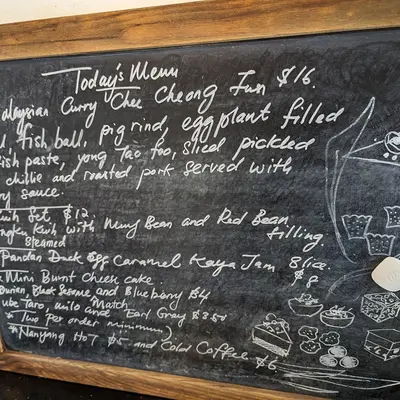 Today's Menu
alaysian Curry Chee Cheong Fun $16.
fish ball, pig rind, eggplant filled
ish paste, yong Tao foo, sliced pickled
chillie and roasted pork served with
ry sauce.
Kuih Set $12
ngku Kuih with Mung Bean and Red Bean
Steamed filling.
Pandan Duck Egg Caramel Kaya Jam Slice.
$8
Mini Burnt Cheese cake
Durian, Black Sesame and Blueberry $4
Ube Taro, milo Match
and Earl Gray $3.50
* Two Per order minimum)
* Nanyang Hot $5 and Cold Coffee $6